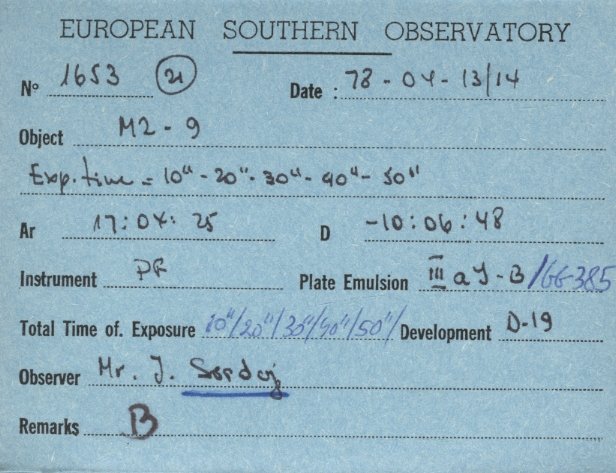 EUROPEAN SOUTHERN OBSERVATORY
Nº 1653 21 Date : 78-04-13/14
Object M2-9
Exp. time = 10"-20"-30"-40"-50"
Ar 17:04:25 D -10:06:48
Instrument PF Plate Emulsion III aJ-B/GG-385
Total Time of. Exposure 10"/20"/30"/40"/50"/ Development D-19
Observer Mr. J.
Remarks B